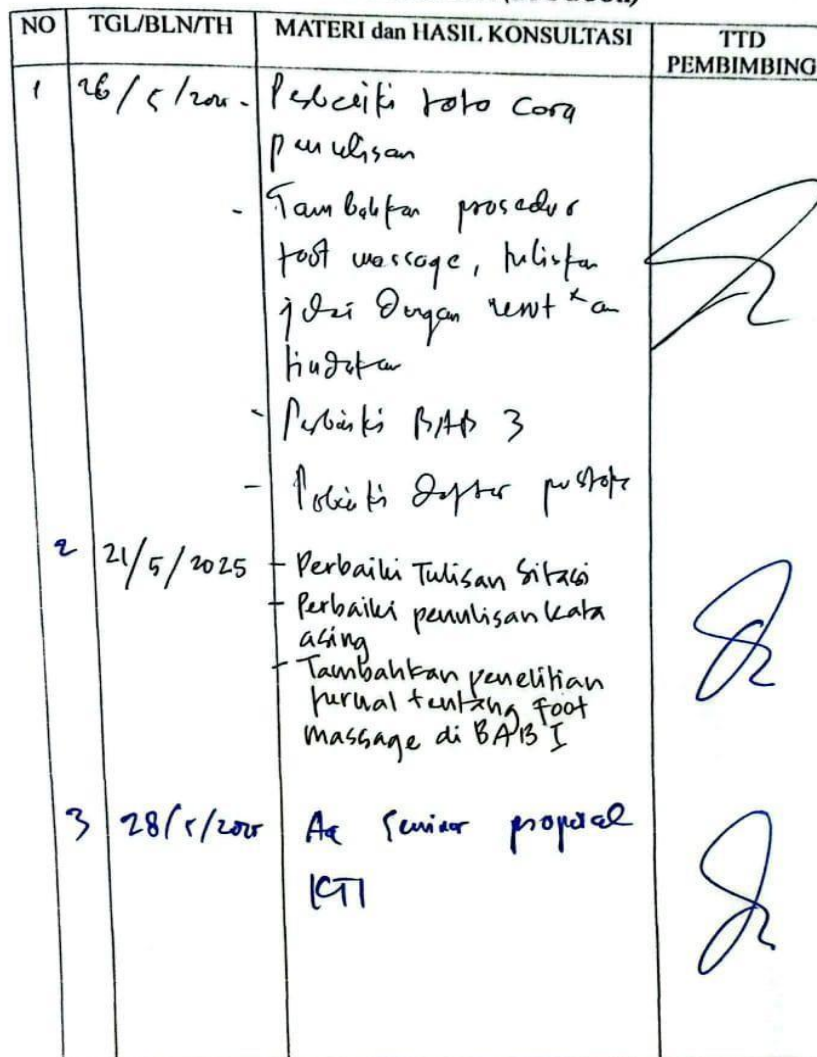 NO TGL/BLN/TH MATERI dan HASIL KONSULTASI TTD PEMBIMBING
1 26/5/2025 - Perbaiki tata cara
penulisan
- Tambahkan prosedur
foot massage, tuliskan
dengan
tindakan
- Perbaiki BAB 3
- Perbaiki daftar pustaka
2 21/5/2025 - Perbaiki Tulisan Sitasi
- Perbaiki penulisan kata
asing
- Tambahkan penelitian
jurnal tentang foot
massage di BAB I
3 28/5/2025 Acc Seminar proposal
KTI